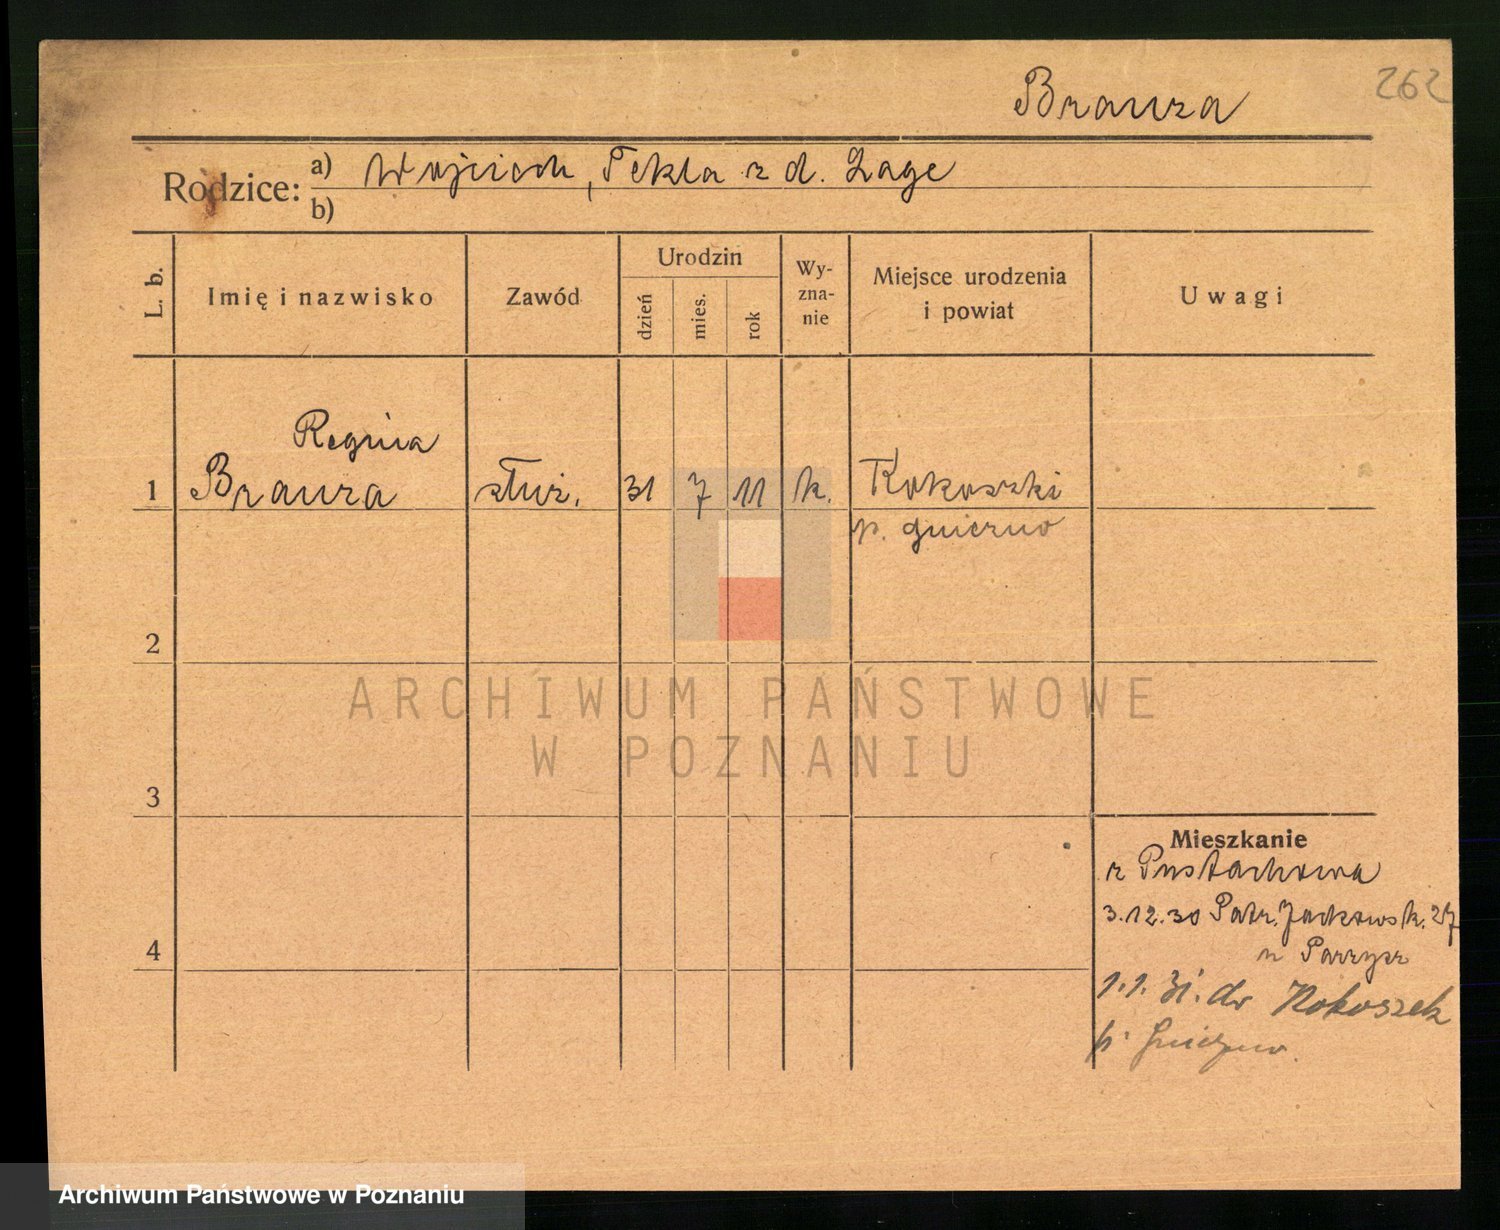 262
Brauza
Rodzice: a) Wojciech, Tekla z d. Zage
b)
L. b. Imię i nazwisko Zawód Urodzin dzień mies. rok Wy-zna-nie Miejsce urodzenia i powiat Uwagi
Regina
1 Brauza służ. 31 7 11 k. Kokoszki
p. Gniezno
2
3
4
Mieszkanie
z Pustachowa
3.12.30 Patr. Jackowsk. 27
u Parzysz
1.1.31. do Kokoszek
p. Gniezno.
ARCHIWUM PAŃSTWOWE
W POZNANIU
Archiwum Państwowe w Poznaniu